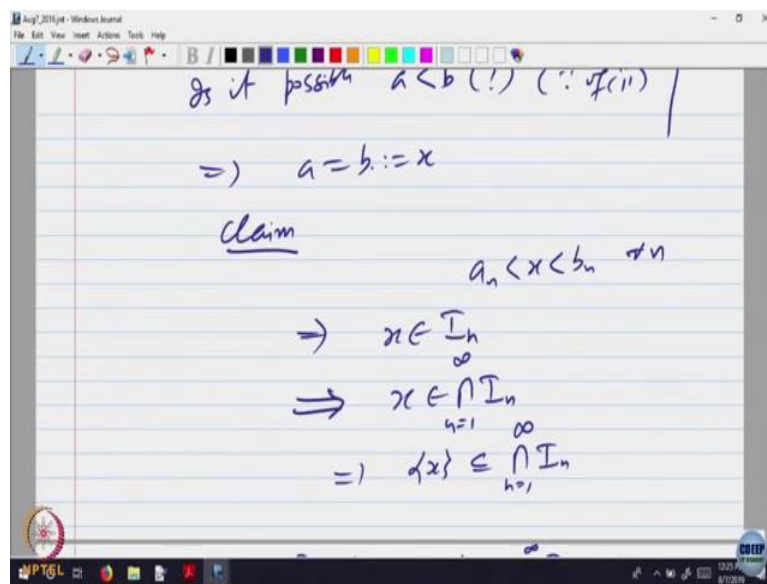 Aug7_2016.jnt - Windows Journal
File Edit View Insert Actions Tools Help
Is it possible a < b (!) (∵ of (ii)
=) a = b := x
Claim
aₙ < x < bₙ ∀n
⇒ x ∈ Iₙ
⇒ x ∈ ⋂_{n=1}^{∞} Iₙ
=) {x} ⊆ ⋂_{n=1}^{∞} Iₙ
∞
NPTEL
CDEEP
IIT BOMBAY
8/7/2019